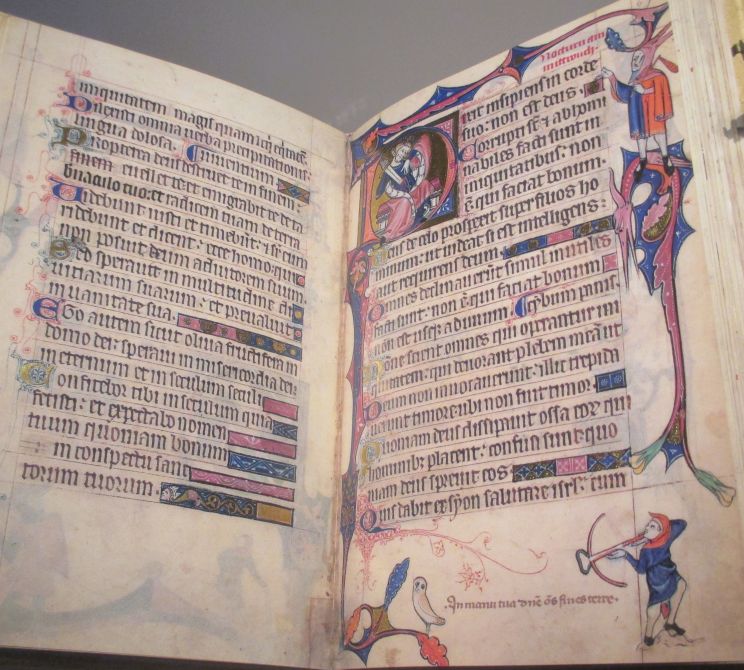 iniquitatem magis quam loqui
Dilexisti omnia verba precipitationis
lingua dolosa.
Propterea deus destruet te in finem
euellet te et emigrabit te de ta
bernaculo tuo: et radicem tuam de terra
viuentium
Videbunt iusti et timebunt: et super eum
ridebunt et dicent: ecce homo: qui
non posuit deum adiutorem suum
Sed sperauit in multitudine di
uitiarum suarum: et preualuit
in uanitate sua.
Ego autem sicut oliua fructifera in
domo dei: speraui in misericordia dei
in eternum et in seculum seculi
Confitebor tibi in seculum quia
fecisti: et expectabo nomen
tuum quoniam bonum
in conspectu sanc
torum tuorum.
Dixit insipiens in corde
suo: non est deus.
Corrupti st et abhomi
nabiles facti sunt in
iniquitatibus: non
e qui faciat bonum.
Deus de celo prospexit super filios ho
minum: ut uideat si est intelligens:
aut requirens deum.
Omnes declinauerunt simul inutiles
facti sunt: non e qui faciat bonum
non est usq ad unum.
Nonne scient omnes qui operantur ini
quitatem: qui deuorant plebem meam ut
cibum panis
Deum non inuocauerunt: illic trepida
uerunt timore: ubi non fuit timor.
Quoniam deus dissipauit ossa eor qui
hominibz placent: confusi sunt: quo
niam deus spreuit eos.
Quis dabit ex syon salutare isrl: cum
In manu tua dne os fines terre.